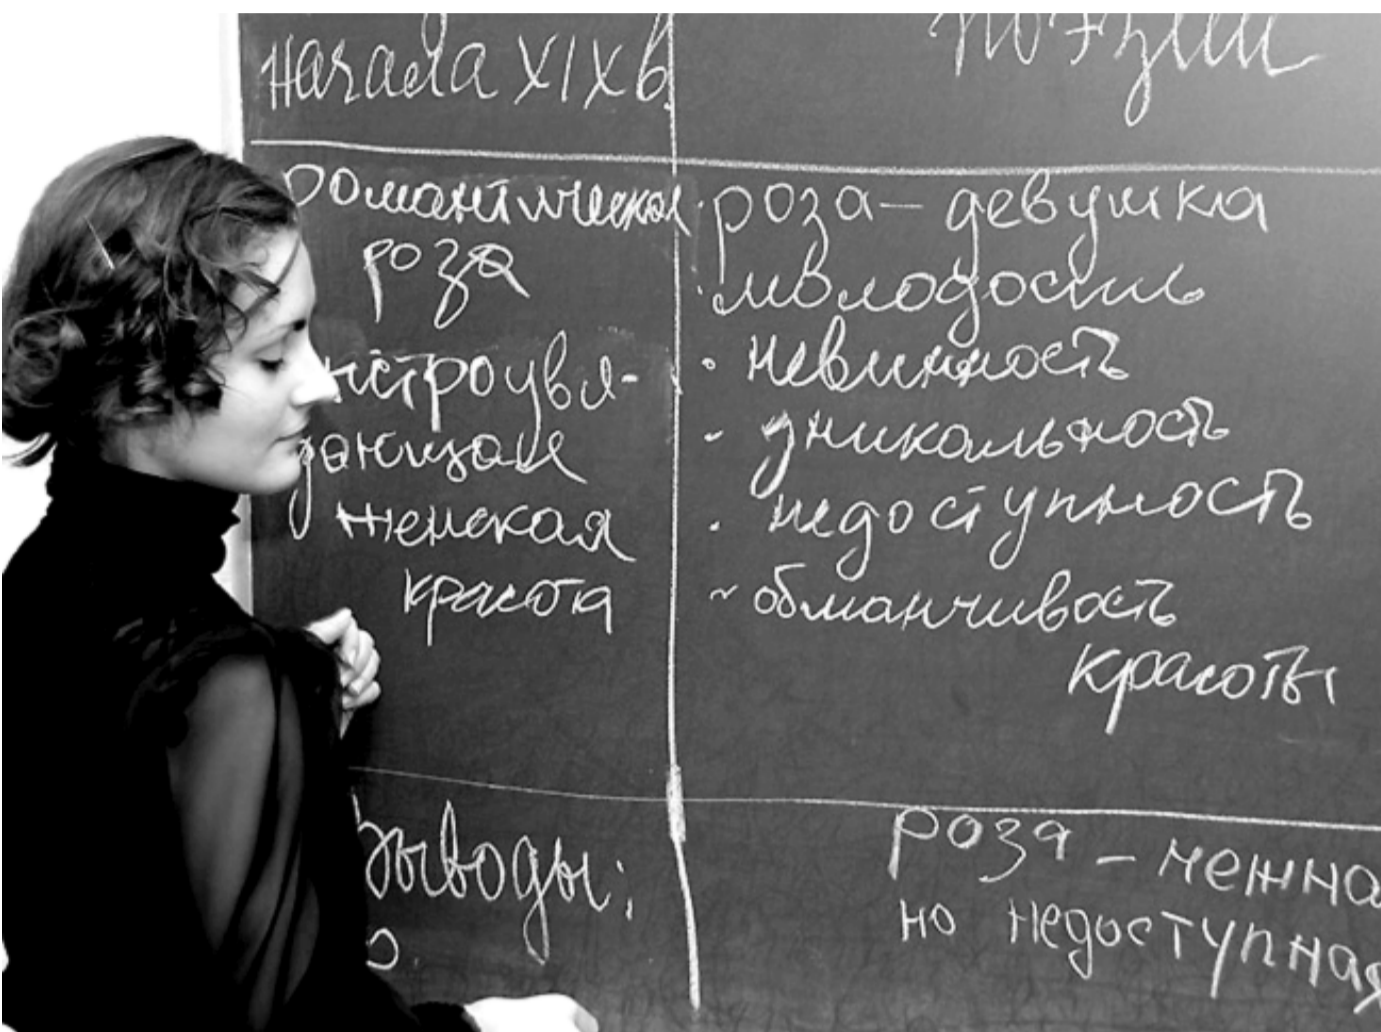 начала XIX в.
поэзии
романтическая
роза
ыстроувя-
дающая
женская
красота
· роза – девушка
· молодость
· невинность
- уникальность
· недоступность
~ обманчивость
красоты
Выводы:
роза – нежна
но недоступная